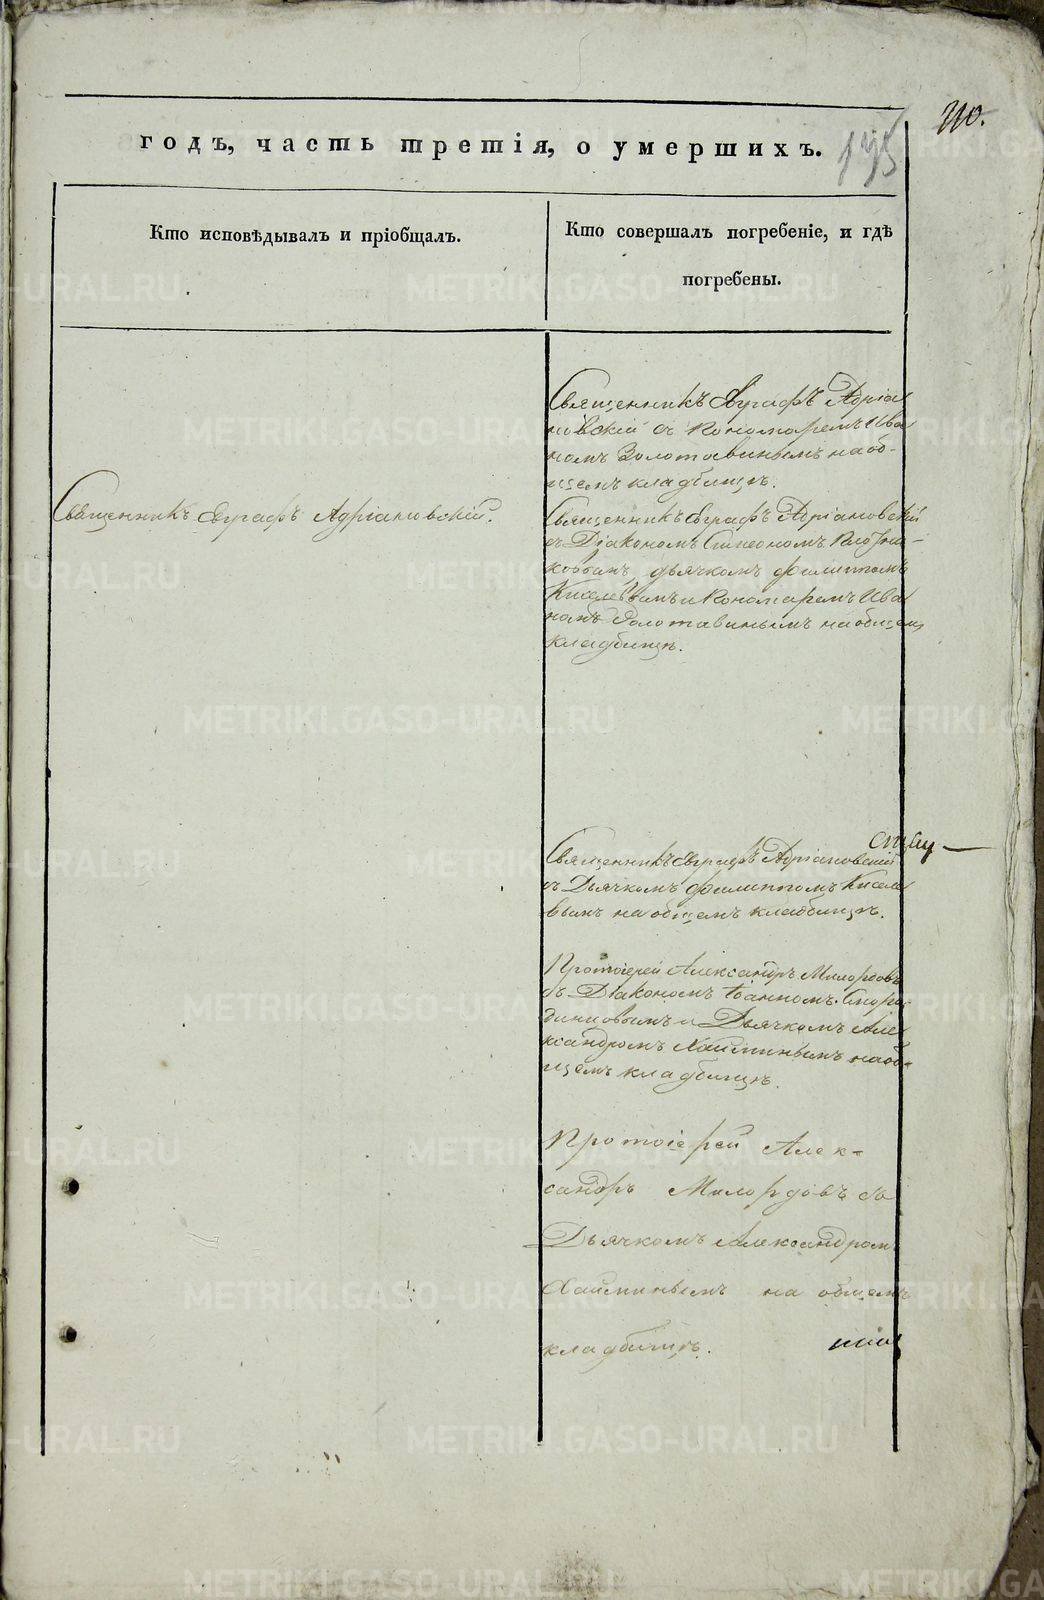 310.
годъ, часть третія, о умершихъ.
195
Кто исповѣдывалъ и пріобщалъ.
Кто совершалъ погребеніе, и гдѣ
погребены.
Священникъ Евграфъ Адріа
новскій съ Пономаремъ Ива
номъ Золотавинымъ на об-
щемъ кладбищѣ.
Священникъ Евграфъ Адріановскій.
Священникъ Евграфъ Адріановскій
съ Діакономъ Симеономъ Плотни-
ковымъ, дьячкомъ Филиппомъ
Киселевымъ и Пономаремъ Ива
номъ Золотавинымъ на общемъ
кладбищѣ.
Священникъ Евграфъ Адріановскій
съ Дьячкомъ Филиппомъ Кисел
вымъ на общемъ кладбищѣ.
Протоіерей Александръ Милордовъ
съ Діакономъ Іоанномъ Сморо-
динцовымъ и Дьячкомъ Але
ксандромъ Хайминымъ на об-
щемъ кладбищѣ.
Протоіерей Алек-
сандръ Милордовъ съ
Дьячкомъ Александромъ
Хайминымъ на общемъ
кладбищѣ.
METRIKI.GASO-URAL.RU